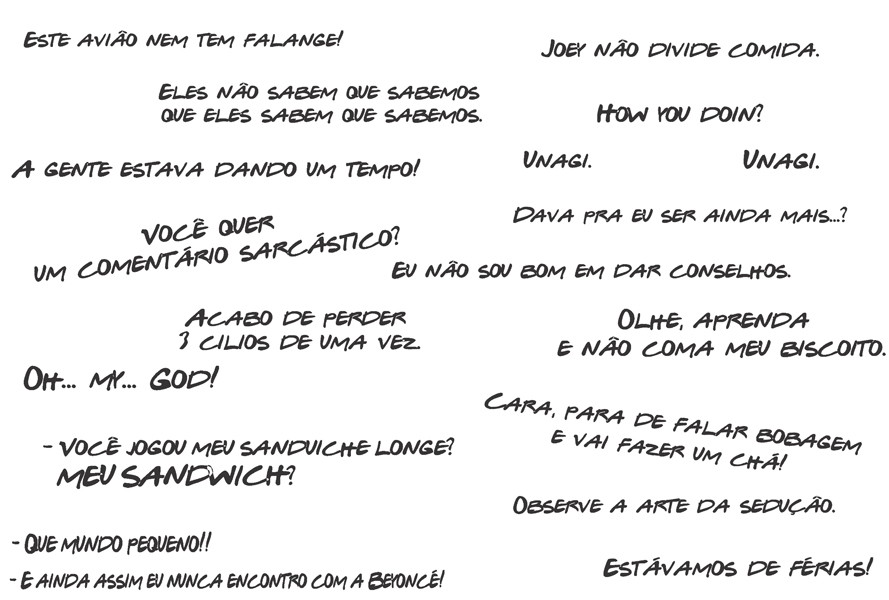 Este avião nem tem falange!
Joey não divide comida.
Eles não sabem que sabemos
que eles sabem que sabemos.
How you doin?
A gente estava dando um tempo!
Unagi.
Unagi.
Dava pra eu ser ainda mais...?
Você quer
um comentário sarcástico?
Eu não sou bom em dar conselhos.
Acabo de perder
3 cilios de uma vez.
Olhe, aprenda
e não coma meu biscoito.
Oh... my... God!
Cara, para de falar bobagem
e vai fazer um chá!
- Você jogou meu sanduiche longe?
MEU SANDWICH?
Observe a arte da sedução.
- Que mundo pequeno!!
- E ainda assim eu nunca encontro com a Beyoncé!
Estávamos de férias!